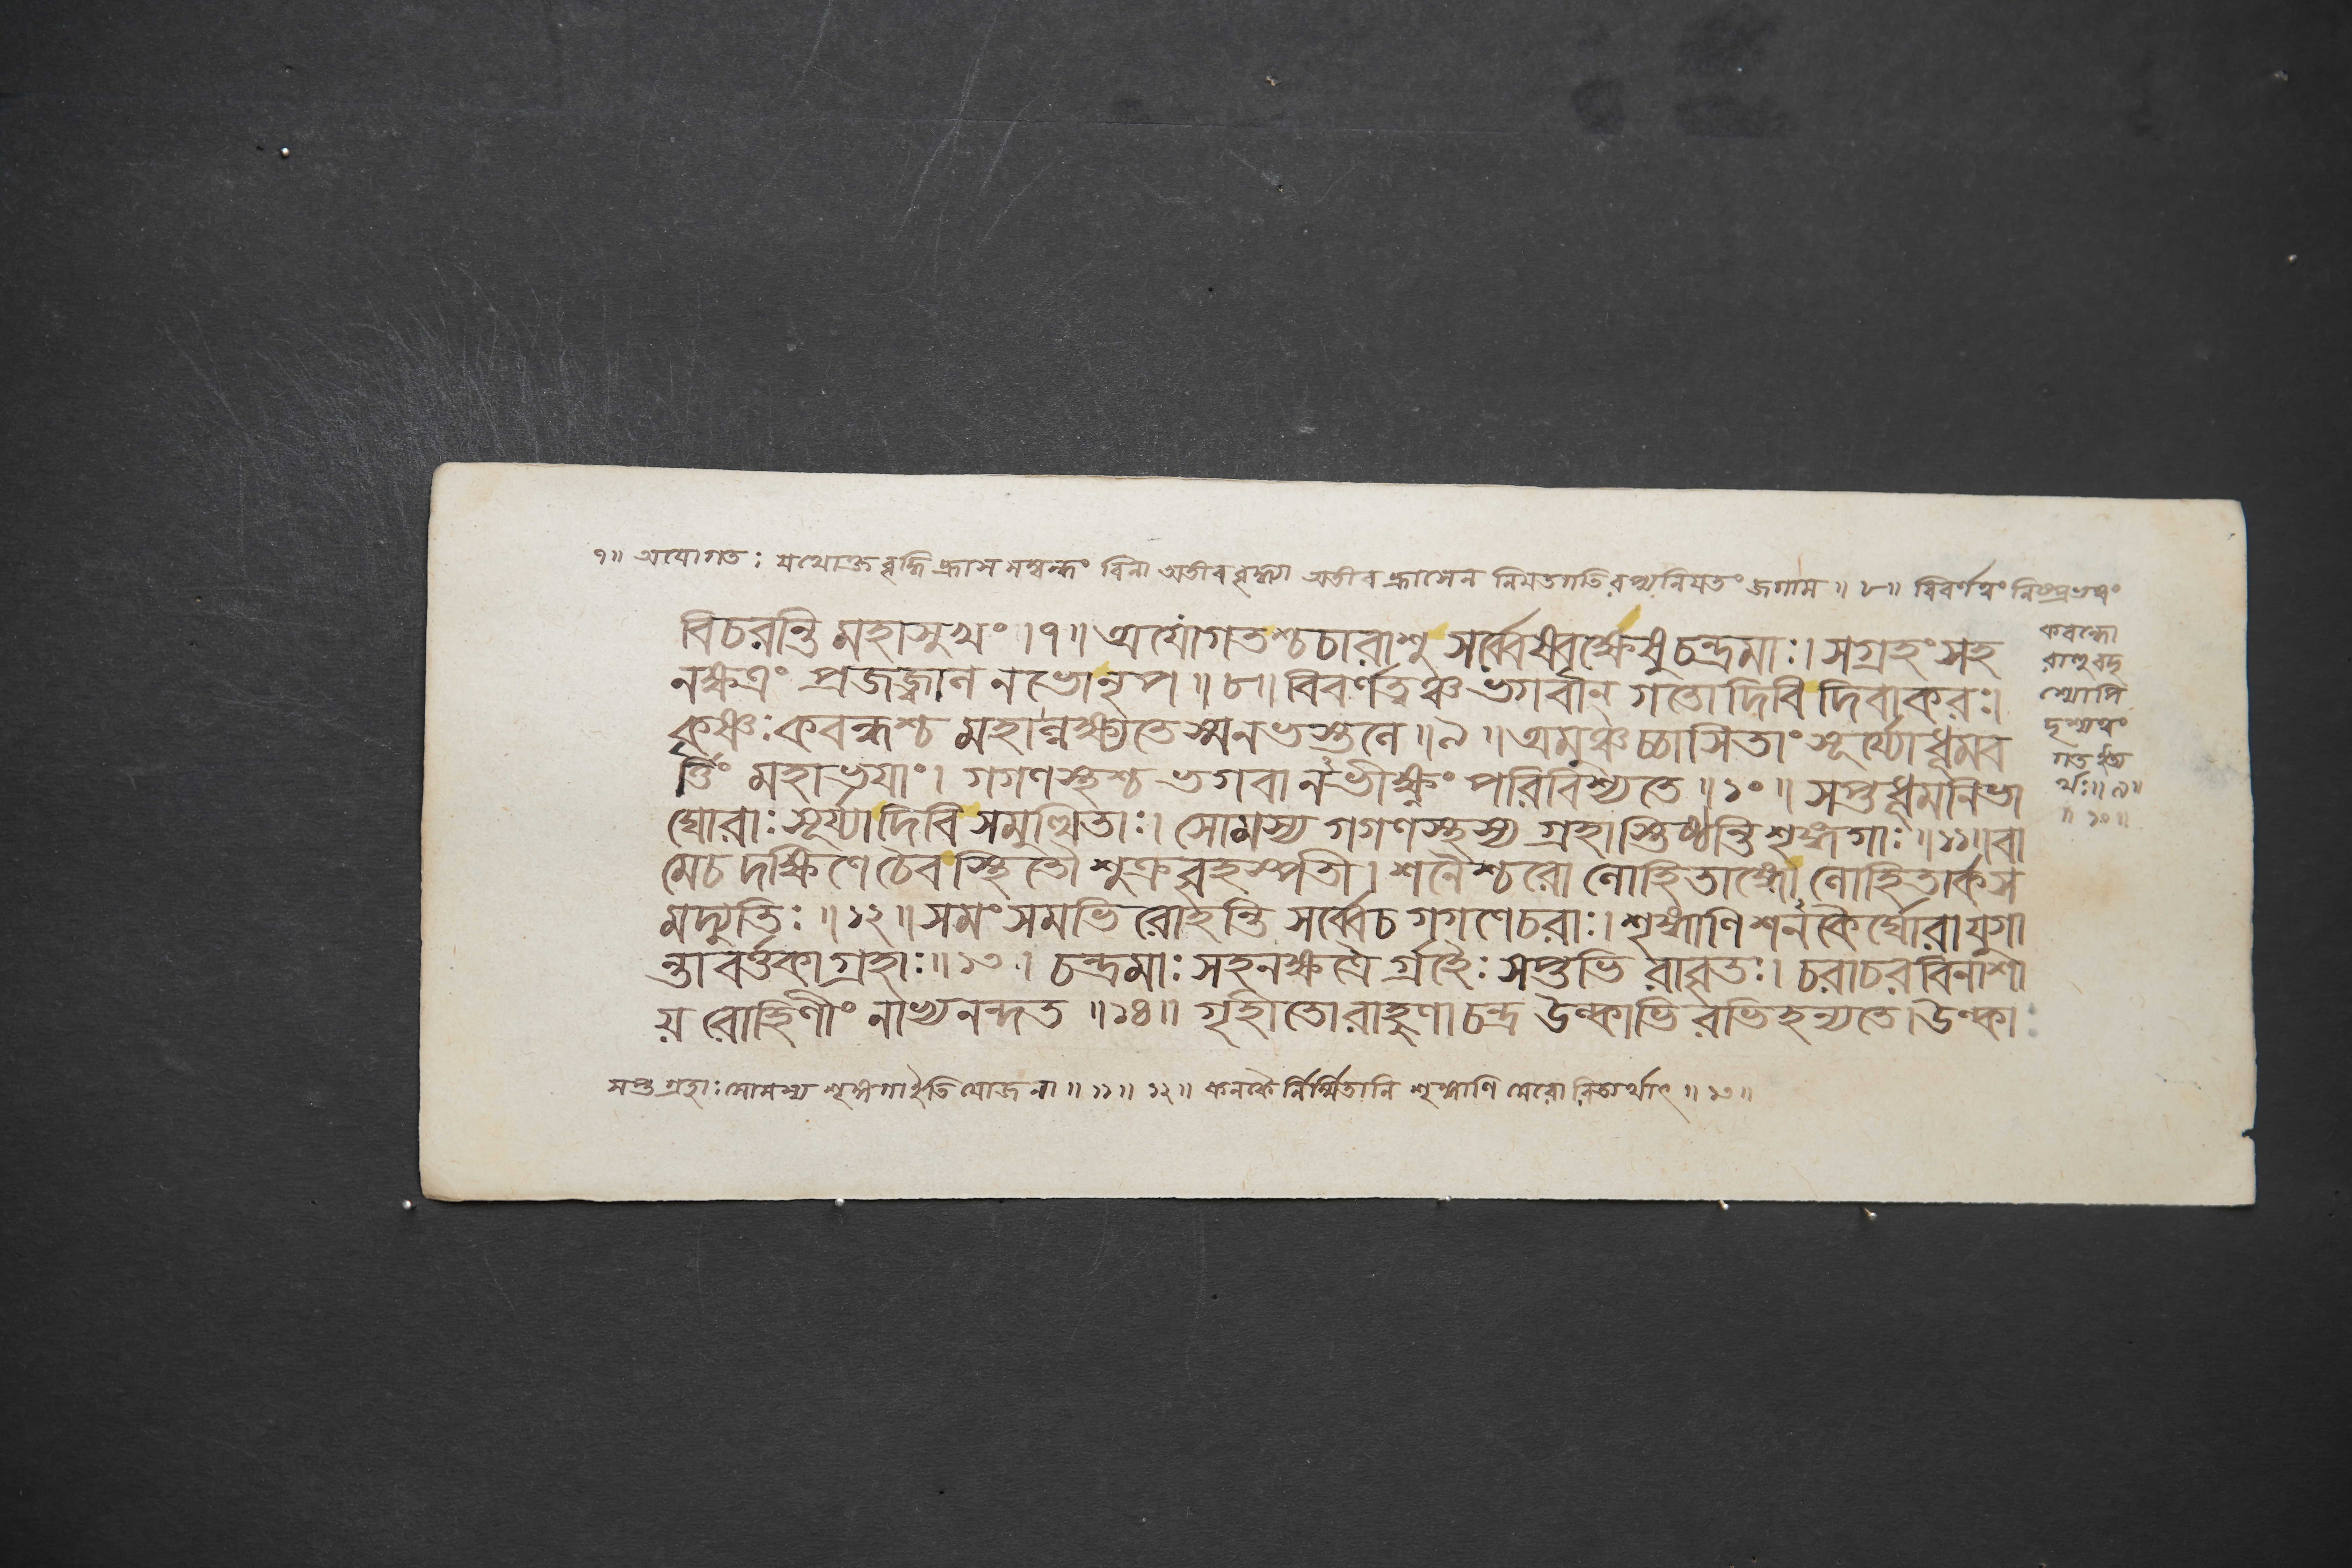 ৭॥ অযোগতঃ যথোক্ত বৃদ্ধি হ্রাস সম্বন্ধং বিনা অতীব বৃদ্ধ্যা অতীব হ্রাসেন নিয়তগতিরপ্যনিয়তং জগাম ॥ ৮॥ বিবর্ণত্বং নিষ্প্রভত্বং
বিচরন্তি মহাসুখং ।৭॥ অযোগতশ্চচারাশু সর্ব্বেষ্বৃক্ষেষু চন্দ্রমাঃ। সগ্রহং সহ
নক্ষত্রং প্রজজ্বাল নভোনৃপ ॥৮॥ বিবর্ণত্বঞ্চ ভগবান্ গতো দিবি দিবাকরঃ।
কৃষ্ণঃ কবন্ধশ্চ মহাল্লঁক্ষ্যতে স্মনভস্তলে ॥৯॥ অমুঞ্চচ্চাসিতাং সূর্য্যোধূমব
র্ত্তিং মহাভয়াং। গগণস্থশ্চ ভগবানভীক্ষ্ণং পরিবিশ্যতে ॥১০॥ সপ্তধূমনিভা
ঘোরাঃ সূর্য্যাদিবি সমুত্থিতাঃ। সোমস্য গগণস্থস্য গ্রহাস্তিষ্ঠন্তি শৃঙ্গগাঃ ॥১১॥ বা
মেচ দক্ষিণে চৈব স্থিতৌ শুক্র বৃহস্পতী। শনৈশ্চরো লোহিতাঙ্গো লোহিতার্কস
মদ্যুতিঃ ॥১২॥ সমং সমভি রোহন্তি সর্ব্বেচ গগণেচরাঃ। শৃঙ্গাণি শনকৈর্ঘোরা যুগা
ন্তাবর্ত্তকা গ্রহাঃ॥১৩। চন্দ্রমাঃ সহনক্ষত্রৈ র্গ্রহৈঃ সপ্তভি রাবৃতঃ। চরাচর বিনাশা
য় রোহিণীং নাভ্যনন্দত ॥১৪॥ গৃহীতো রাহুণা চন্দ্র উল্কাভি রভিহন্যতে। উল্কাঃ
কবন্ধো
রাহুবদৃ
শ্যোপি
দৃশ্যত্বং
গত ইত্য
র্থঃ॥৯॥
॥১০॥
সপ্ত গ্রহাঃ সোমস্য শৃঙ্গগা ইতি যোজনা ॥ ১১॥ ১২॥ কনকৈ র্নির্ম্মিতানি শৃঙ্গাণি মেরো রিত্যর্থাৎ ॥ ১৩॥